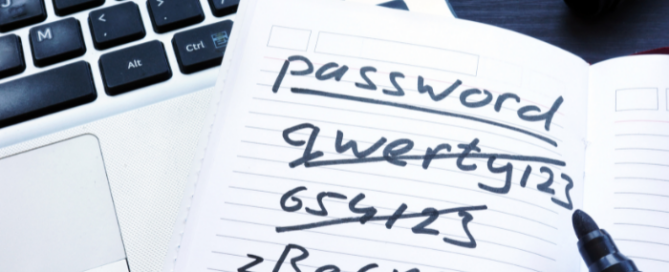 M
<
,
>
.
Alt
Ctrl
password
qwerty123
654123